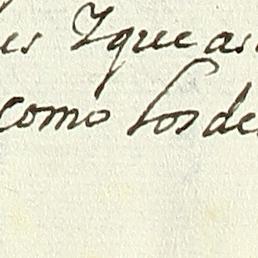 es Yque as
como los de